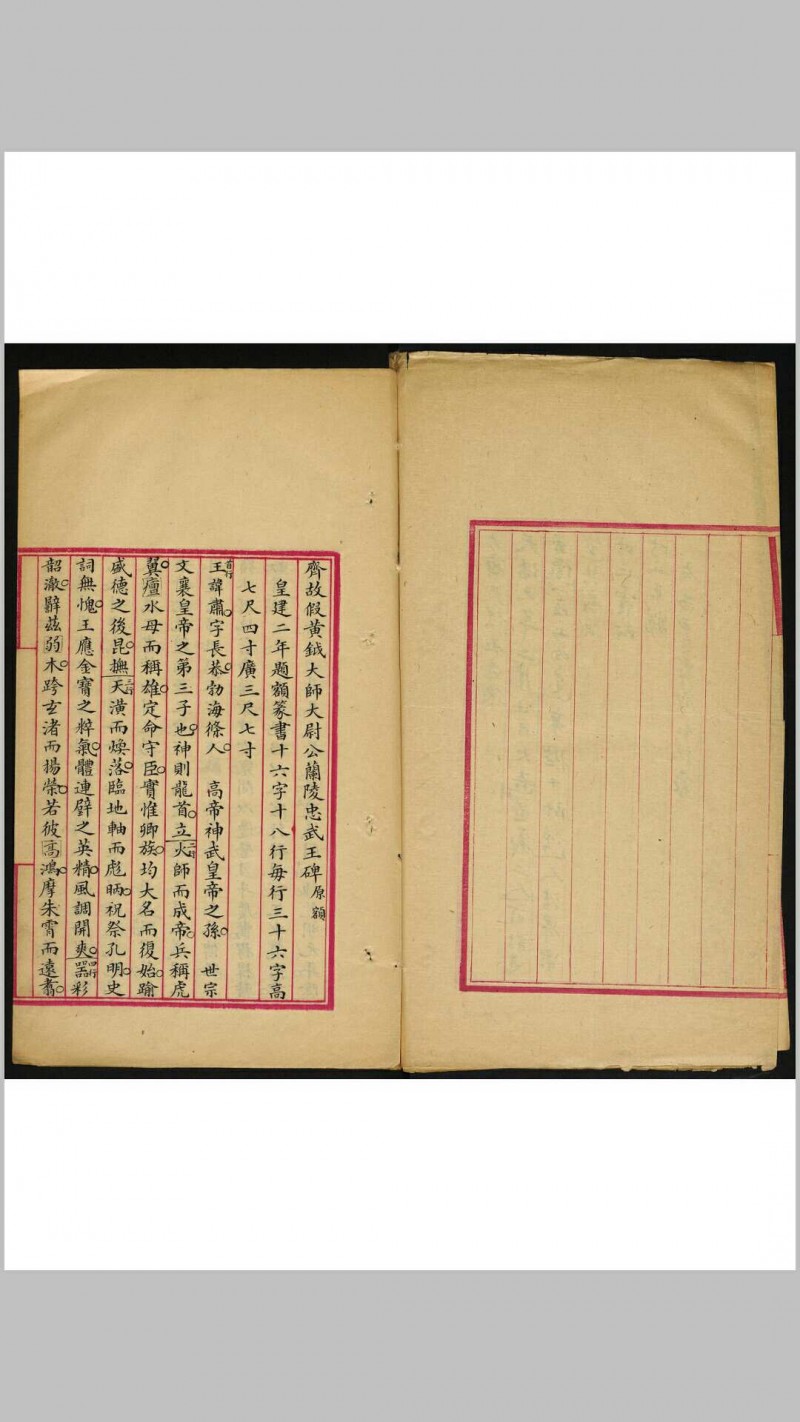 齊故假黃鉞大師大尉公蘭陵忠武王碑原額
皇建二年題額篆書十六字十八行每行三十六字高
七尺四寸廣三尺七寸
首行王諱肅字長恭勃海條人　高帝神武皇帝之孫　世宗
文襄皇帝之第三子也神則龍首立二行火師而成帝兵稱虎
翼廬水母而稱雄定命守臣實惟卿族均大名而復始踰
盛德之後昆撫三行天潢而燥落臨地軸而彪眪祝祭孔明史
詞無愧王應金寶之粹氣體連璧之英精風調開爽四行器彩
韶澈辭茲弱木跨玄渚而揚榮若彼高鴻摩朱霄而遠翥